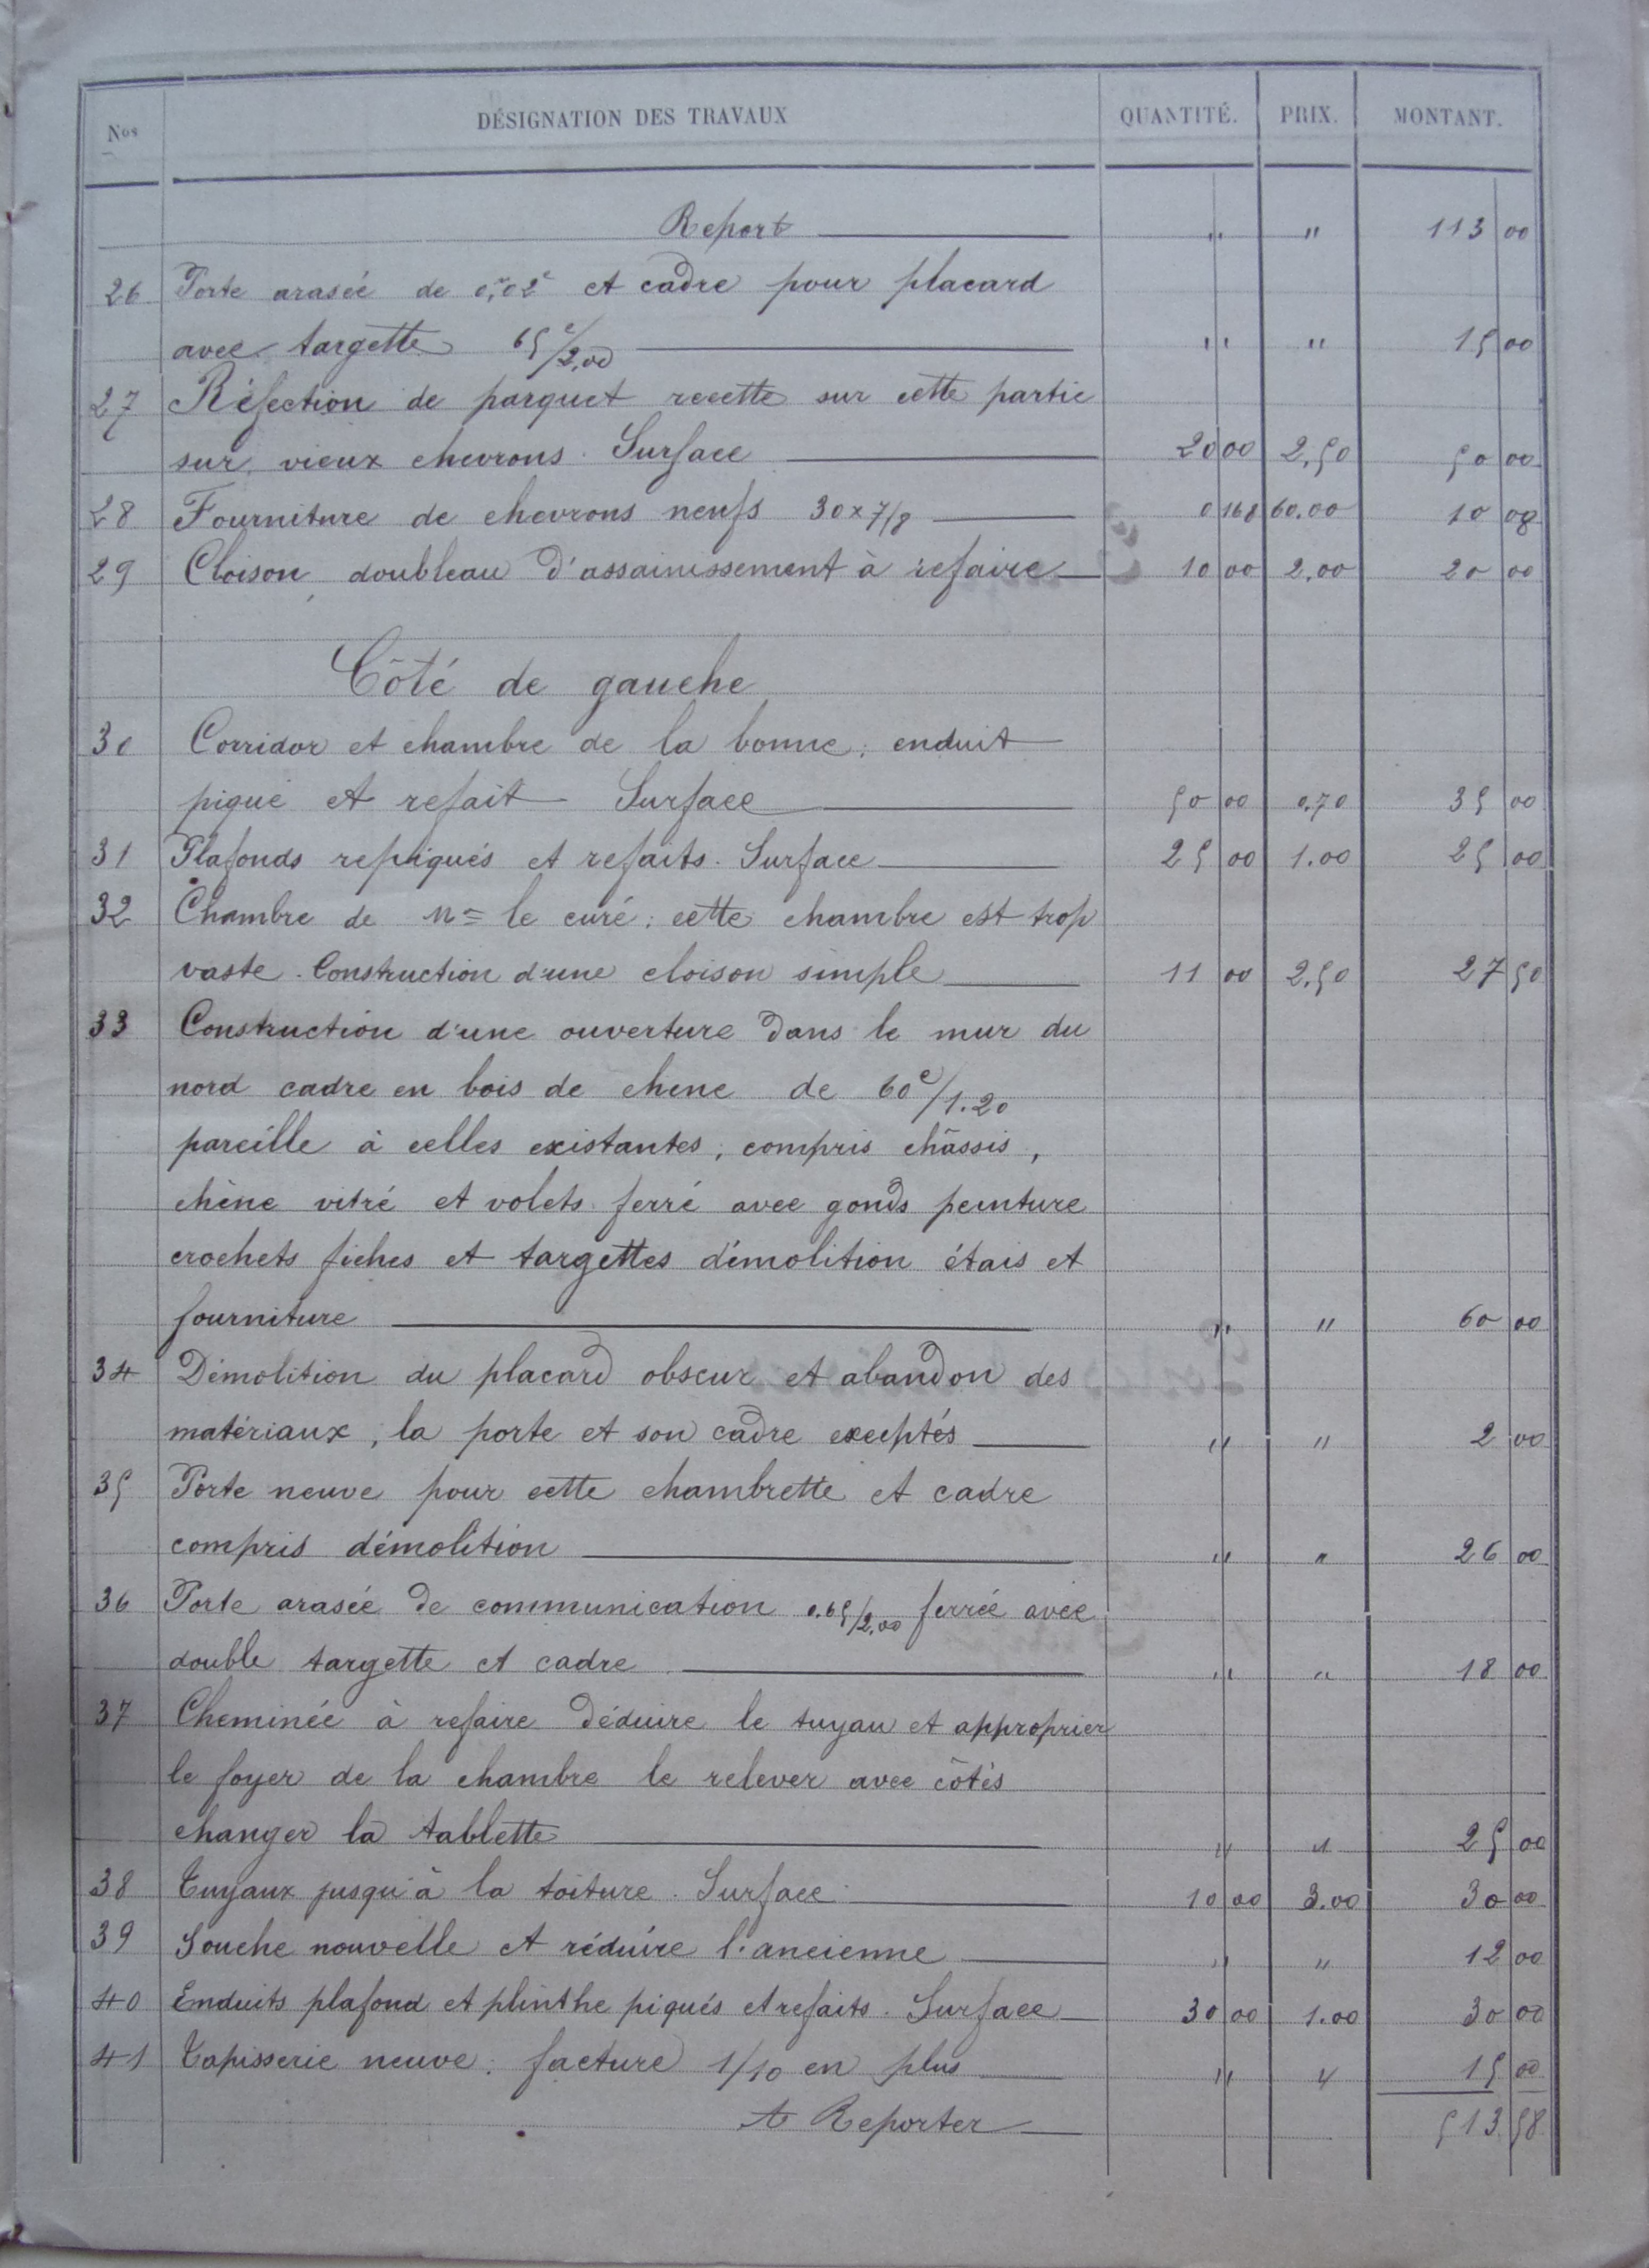 Nos DÉSIGNATION DES TRAVAUX QUANTITÉ. PRIX. MONTANT.
Report " " 113 00
26 Porte arasée de 0,m02c et cadre pour placard
avec targette 65c/2,00 " " 15 00
27 Réfection de parquet recette sur cette partie
sur vieux chevrons. Surface 20 00 2,50 50 00
28 Fourniture de chevrons neufs 30x7/8 0 168 60.00 10 08
29 Cloison doubleau d'assainissement à refaire 10 00 2,00 20 00
Côté de gauche
30 Corridor et chambre de la bonne; enduit
piqué et refait Surface 50 00 0,70 35 00
31 Plafonds repiqués et refaits. Surface 25 00 1.00 25 00
32 Chambre de Mr le curé; cette chambre est trop
vaste. Construction d'une cloison simple 11 00 2,50 27 50
33 Construction d'une ouverture dans le mur du
nord cadre en bois de chene de 60c/1.20
pareille à celles existantes; compris châssis,
chêne vitré et volets ferré avec gonds penture
crochets fiches et targettes démolition étais et
fourniture " " 60 00
34 Démolition du placard obscur et abandon des
matériaux, la porte et son cadre exceptés " " 2 00
35 Porte neuve pour cette chambrette et cadre
compris démolition " " 26 00
36 Porte arasée de communication 0.65/2,00 ferrée avec
double targette et cadre " " 18 00
37 Cheminée à refaire déduire le tuyau et approprier
le foyer de la chambre le relever avec côtés
changer la tablette " " 25 00
38 Tuyaux jusqu'à la toiture. Surface 10 00 3.00 30 00
39 Souche nouvelle et réduire l'ancienne " " 12 00
40 Enduits plafond et plinthe piqués et refaits. Surface 30 00 1.00 30 00
41 Tapisserie neuve; facture 1/10 en plus " " 15 00
A Reporter 513 58